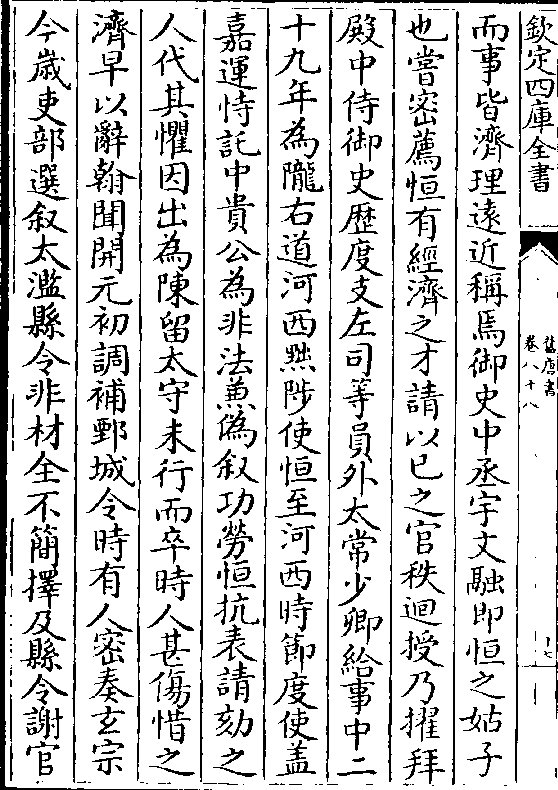 欽定四庫全書
舊唐書
卷八十八
而事皆濟理遠近稱焉御史中丞宇文融即恒之姑子
也嘗密薦恒有經濟之才請以己之官秩迴授乃擢拜
殿中侍御史歴度支左司等員外太常少卿給事中二
十九年為隴右道河西黜陟使恒至河西時節度使盖
嘉運恃託中貴公為非法兼偽叙功勞恒抗表請劾之
人代其懼因出為陳留太守未行而卒時人甚傷惜之
濟早以辭翰聞開元初調補鄄城令時有人密奏玄宗
今歲吏部選叙太濫縣令非材全不簡擇及縣令謝官